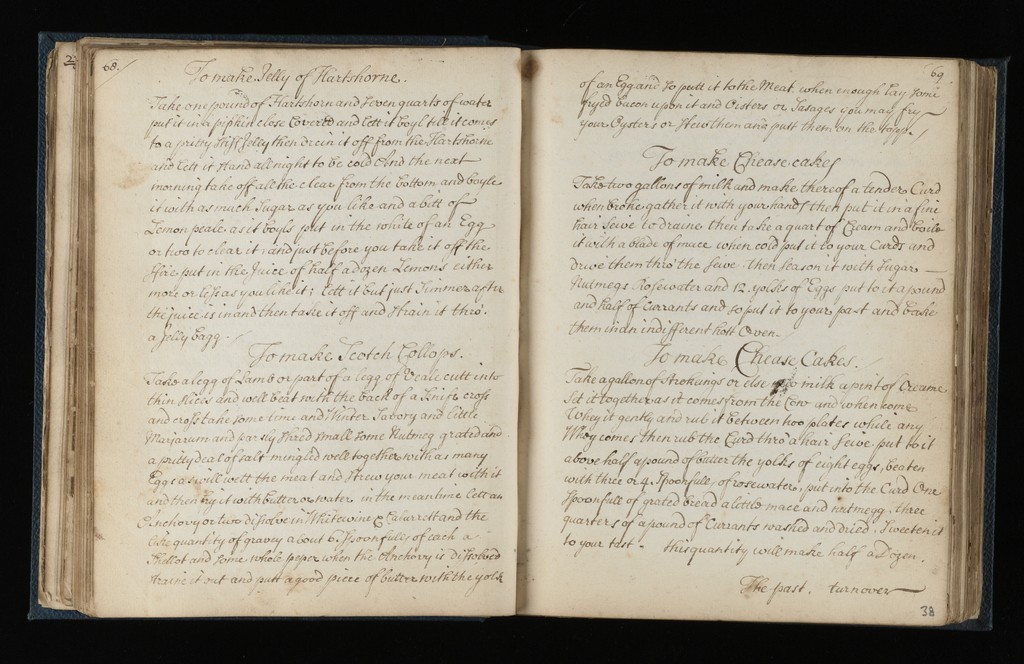 68.
To make Jelly of Hartshorne.
Take one pound of Hartshorn and seven quarts of water
put it in a pipkin close Covered and lett it boyl till it comes
to a pretty stiff Jelly then drein it off from the Hartshorne
and lett it stand all night to be cold And the next
morning take off all the clear from the bottom and boyle
it with as much Sugar as you like and a bitt of
Lemon peale as it boyls put in the white of an Egg
or two to clear it, and just before you take it off the
fire put in the Juice of half a dozen Lemons either
more or less as you like it; lett it but just Simmer after
the juice is in and then take it off and strain it thrô
a Jelly bagg.
To make Scotch Collops.
Take a legg of Lamb or part of a legg of Veale cutt into
thin slices and well beat with the back of a Knife cross
and cross take some time and Winter Savory and little
Marjarum and parsly shred small some Nutmeg grated and
a pritty deal of salt mingled well together with as many
Eggs as will wett the meat and strew your meat with it
and then fry it with butter or water in the meantime lett an
Anchovy or two disolve in Whitewine & Calurett and the
like quantity of gravy about 6 spoonfulls of each a
Shellot and some whole peper when the Anchovy is disolved
straine it out and putt a good piece of butter with the yolk
69
of an Egg and so putt it to the Meat when enough lay some
fryed bacon upon it and Oisters or Sasages you may fry
your Oysters or stew them and putt them on the topp.
To make Chease cakes
Take two gallons of milk and make thereof a tender Curd
when broke gather it with your hands then put it in a fine
hair seive to draine then take a quart of Cream and boile
it with a blade of mace when cold put it to your Curds and
drive them thrô the seive. then season it with Sugar
Nutmegs Rosewater and 12 yolks of Eggs put to it a pound
and half of Currants and so put it to your past and bake
them in an indifferent hott Oven.
To make Chease Cakes.
Take a gallon of strokings or else milk a pint of Creame
Set it together as it comes from the Cow and when come
Whey it gently and rub it between two plates while any
Whey comes then rub the Curd thrô a hair seive put to it
above half a pound of butter the yolks of eight eggs, beaten
with three or 4 spoonfulls of rosewater, put into the Curd One
spoonfull of grated bread a little mace and nutmegg. three
quarters of a pound of Currants washed and dried. Sweeten it
to your tast - this quantity will make half a Dozen.
The past. turnover
38